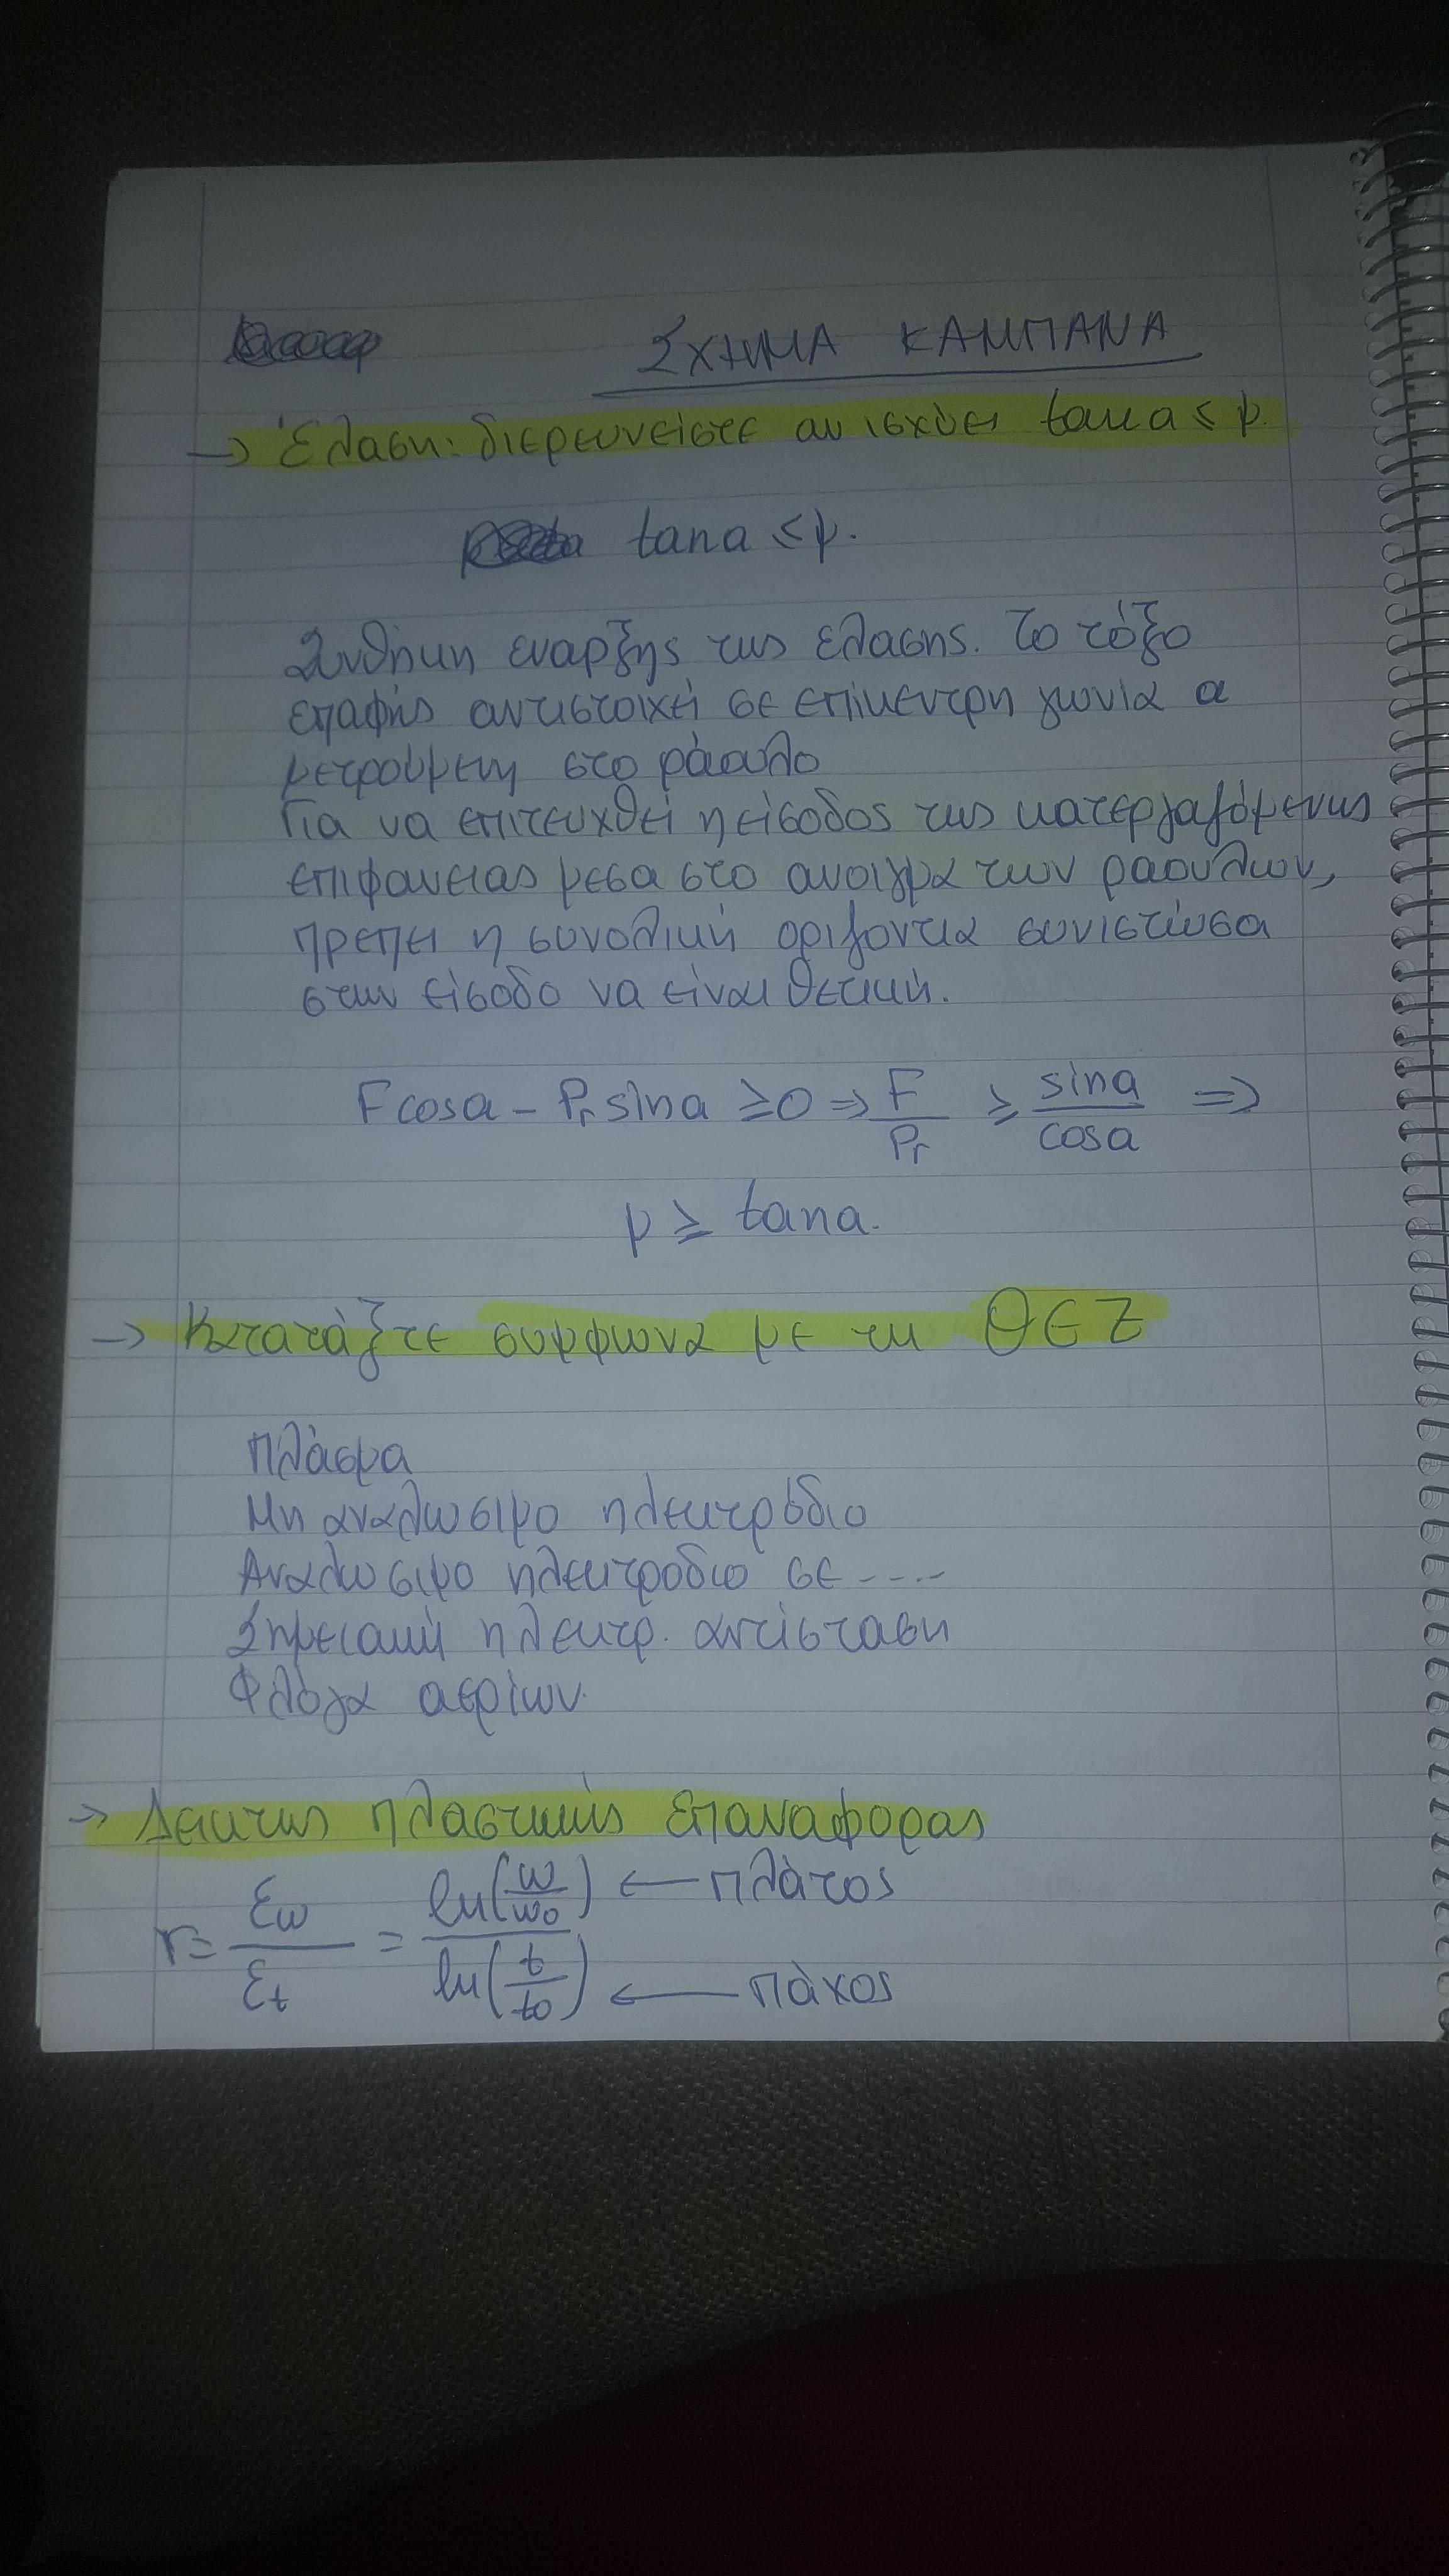 ΣΧΗΜΑ ΚΑΜΠΑΝΑ
→ Έλαση: διερευνείστε αν ισχύει tana ≤ μ.
tana ≤ μ.
Συνθήκη εναρξης της ελασης. Το τόξο
επαφής αντιστοιχεί σε επίκεντρη γωνία α
μετρούμενη στο ράουλο
Για να επιτευχθεί η είσοδος της κατεργαζόμενης
επιφανειας μεσα στο ανοιγμα των ραουλων,
πρεπει η συνολική οριζοντια συνιστώσα
στην είσοδο να είναι θετική.
Fcosa - Pr sina ≥ 0 ⇒ F/Pr ≥ sina/cosa ⇒
μ ≥ tana.
→ Κατατάξτε συμφωνα με τη ΘΕΖ
Πλάσμα
Μη αναλωσιμο ηλεκτρόδιο
Αναλωσιμο ηλεκτροδιο σε ----
Σημειακή ηλεκτρ. αντίσταση
Φλόγα αερίων.
→ Δεικτης πλαστικής επαναφορας
r = εw/εt = ln(w/wo)/ln(t/to) ← πλάτος
← πάχος